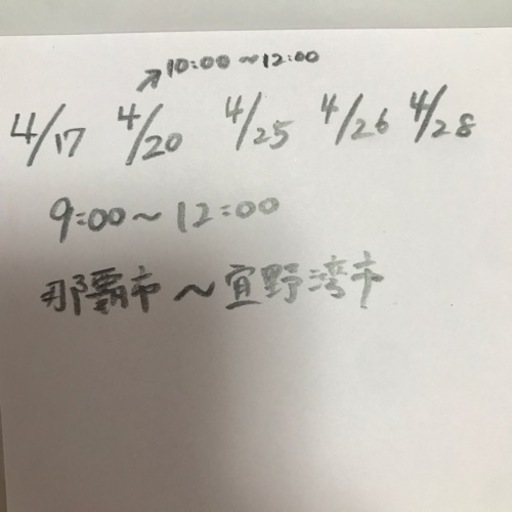 ↗10:00~12:00
4/17 4/20 4/25 4/26 4/28
9:00~12:00
那覇市~宜野湾市